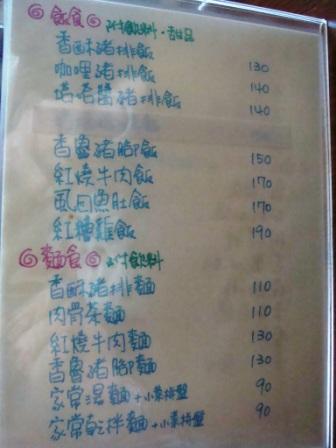 飯食 附飲料.杏仁品
香酥豬排飯
咖哩豬排飯 130
塔香醬豬排飯 140
140
香魯豬腳飯 150
紅燒牛肉飯 170
虱目魚肚飯 170
紅糟雞飯 190
麵食 附飲料
香酥豬排麵 110
肉骨茶麵 110
紅燒牛肉麵 130
香魯豬腳麵 130
家常湯麵+小菜拼盤 90
家常乾拌麵+小菜拼盤 90